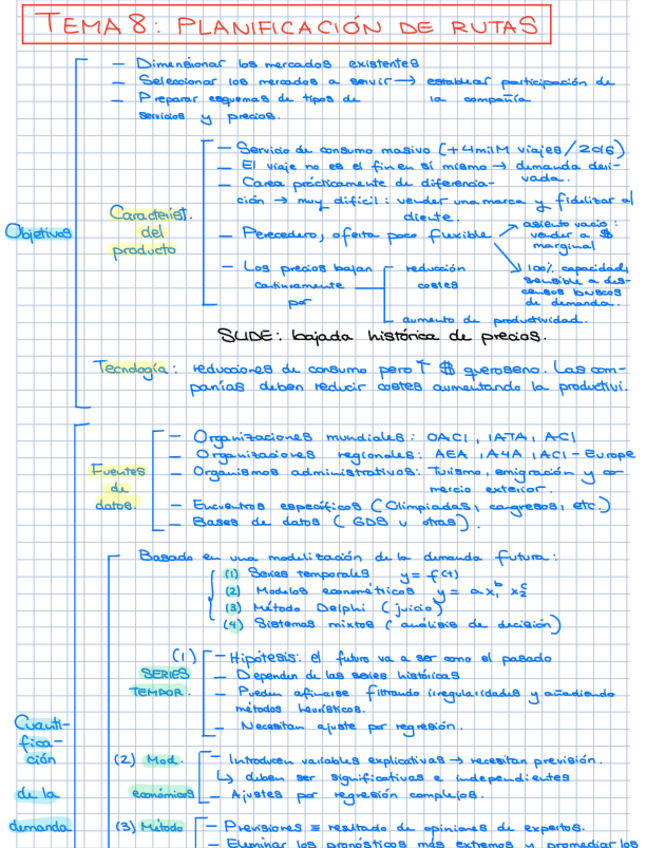 TEMA 8: PLANIFICACIÓN DE RUTAS
Objetivos
— Dimensionar los mercados existentes
— Seleccionar los mercados a servir → establecer participación de la compañía
— Preparar esquemas de tipos de servicios y precios.
Caracterist. del producto
— Servicio de consumo masivo (+4milM viajes/2016)
— El viaje no es el fin en sí mismo → demanda derivada.
— Carea prácticamente de diferenciación → muy difícil: vender una marca y fidelizar al cliente.
— Perecedero, oferta poco flexible
→ asiento vacío: vender a $ marginal
→ 100% capacidad, sensible a descensos bruscos de demanda.
— Los precios bajan continuamente por
reducción costes
aumento de productividad.
SLIDE: bajada histórica de precios.
Tecnología: reducciones de consumo pero ↑ $ queroseno. Las compañías deben reducir costes aumentando la productivi.
Cuantificación de la demanda
Fuentes de datos.
— Organizaciones mundiales: OACI, IATA, ACI
— Organizaciones regionales: AEA, A4A, ACI-Europe
— Organismos administrativos: Turismo, emigración y comercio exterior.
— Encuentros específicos (Olimpiadas, congresos, etc.)
— Bases de datos (GDS u otras).
Basado en una modelización de la demanda futura:
(1) Series temporales y = f(t)
(2) Modelos econométricos y = a x₁ᵇ x₂ᶜ
(3) Método Delphi (juicio)
(4) Sistemas mixtos (análisis de decisión)
(1) SERIES TEMPOR.
— Hipótesis: el futuro va a ser como el pasado
— Dependen de las series históricas
— Pueden afinarse filtrando irregularidades y añadiendo métodos heurísticos.
— Necesitan ajuste por regresión.
(2) Mod. económicos
— Introducen variables explicativas → necesitan previsión.
↳ deben ser significativas e independientes
— Ajustes por regresión complejos.
(3) Método
— Previsiones ≡ resultado de opiniones de expertos.
— Eliminar los pronósticos más extremos y promediar los